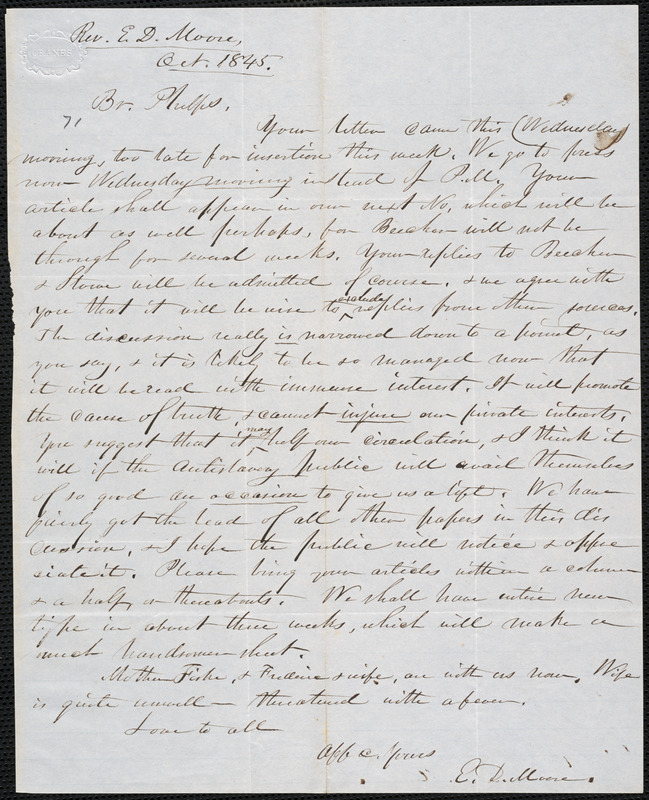 Rev. E. D. Moore,
Oct. 1845.
71
Br. Phelps,
Your letter came this (Wednesday)
morning, too late for insertion this week. We go to press
now Wednesday morning instead of P.M. Your
article shall appear in our next No, which will be
about as well perhaps, for Beecher will not be
through for several weeks. Your replies to Beecher
& Stowe will be admitted of course. & we agree with
you that it will be wise to exclude replies from other sources.
The discussion really is narrowed down to a point, as
you say, & it is likely to be so managed now that
it will be read with immense interest. It will promote
the cause of truth, & cannot injure our private interests.
You suggest that it may help our circulation, & I think it
will if the Antislavery public will avail themselves
of so good an occasion to give us a lift. We have
got the lead of all other papers in this dis
cussion, & I hope the public will notice & appre
ciate it. Please bring your articles within a column
& a half, or thereabouts. We shall have entire new
type in about three weeks, which will make a
much handsomer sheet.
Mother Fiske, & & wife, are with us now. Wife
is quite unwell - threatened with a fever.
Love to all
Aff. Yours
E. D. Moore.